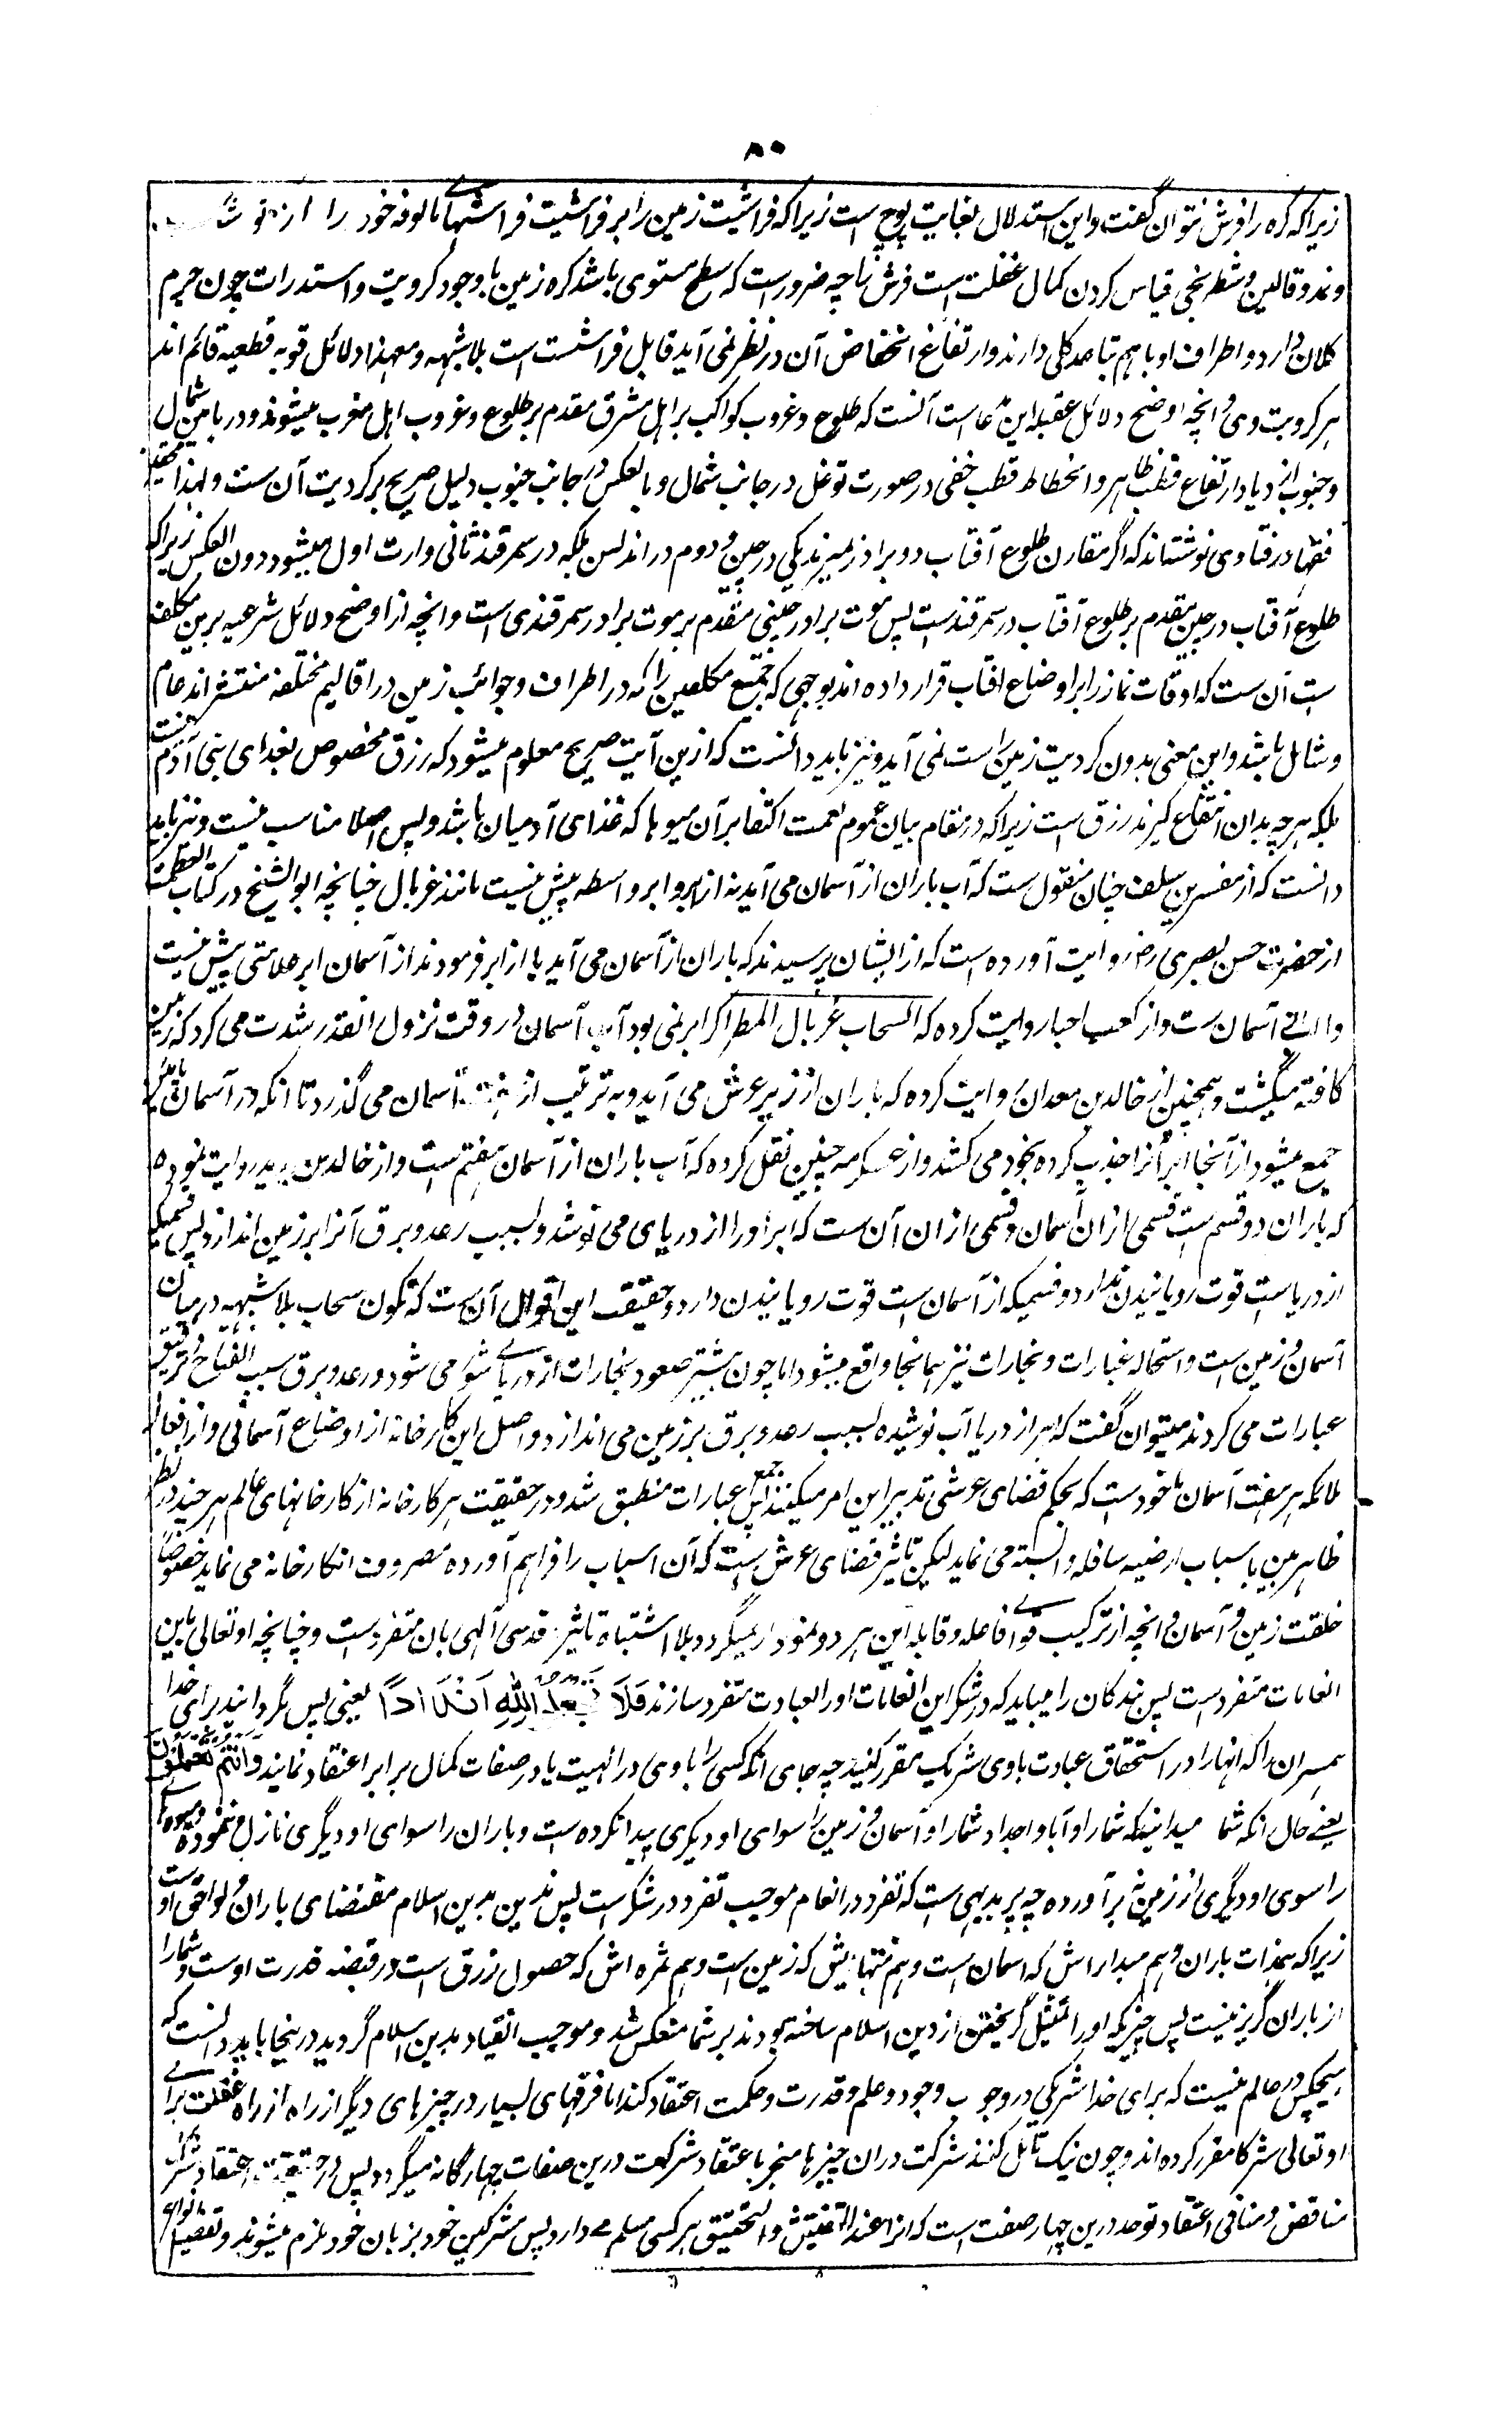 ۸۰
زیراکه کره را فرش نتوان گفت و این استدلال بغایت پوچ است زیراکه فراشیت زمین را بر فراشیت فراشهای مالوفه خود را از
و نمد و قالین و شطرنجی قیاس کردن کمال غفلت است فرش را چه ضرور است که سطح مستوی باشد کره زمین با وجود کرویت و استدرات چون جرم
کلان دارد و اطراف او باهم تباعد کلی دارند و ارتفاع انخفاض آن در نظر نمی آید قابل فراشست است بلاشبهه و معهذا دلائل قویه قطعیه قائم اند
بر کرویت وی و انچه اوضح دلائل عقلیه این مدعاست آنست که طلوع و غروب کواکب بر اهل مشرق مقدم بر طلوع و غروب اهل مغرب میشوند و در مابین شمال
و جنوب ازدیاد ارتفاع قطب ظاهر و انحطاط قطب خفی در صورت توغل در جانب شمال و بالعکس در جانب جنوب دلیل صریح بر کرویت آن ست و لهذا محققین
فقها در فتاوی نوشته‌اند که اگر مقارن طلوع آفتاب دو برادر بمیرند یکی در چین و دوم در اندلس بلکه در سمرقند ثانی وارث اول میشود دون العکس زیراکه
طلوع آفتاب در چین مقدم بر طلوع آفتاب در سمرقند ست پس موت برادر چینی مقدم بر موت برادر سمرقندی است و انچه از اوضح دلائل شرعیه برین مکلفه
ست آن ست که اوقات نماز را بر اوضاع افتاب قرار داده اند بوجهی که جمیع مکلفین را که در اطراف و جوانب زمین در اقالیم مختلفه منتشر اند عام
و شامل باشد و این معنی بدون کرویت زمین راست نمی آید و نیز باید دانست که ازین آیت صریح معلوم میشود که رزق مخصوص بغذای بنی آدم نیست
بلکه هر چه بدان انتفاع گیرند رزق است زیراکه در مقام بیان عموم نعمت اکتفا بر آن میوها که غذای آدمیان باشد و بس اصلا مناسب نیست و نیز باید
دانست که از مفسرین سلف چنان منقول ست که آب باران از آسمان می آید نه از ابر و ابر واسطه بیش نیست مانند غربال چنانچه ابو الشیخ در کتاب العظمت
از حضرت حسن بصری رض روایت آورده است که از ایشان پرسیدند که باران از آسمان می آید یا از ابر فرمودند از آسمان ابر علامتی بیش نیست
آسمان ست و از کعب احبار روایت کرده که السحاب غربال المطر اگر ابر نمی بود آب آسمان در وقت نزول انقدر شدت می کرد که زمین
کافته میگشت و همچنین از خالد بن معدان روایت کرده که باران از زیر عرش می آید و به ترتیب از آسمان می گذرد تا انکه در آسمان پائین
جمع میشود از آنجا ابر آنرا جذب کرده بخود می کشد و از عکرمه چنین نقل کرده که آب باران از آسمان هفتم ست و از خالد بن یزید روایت نموده
که باران دو قسم است قسمی از ان آسمان و قسمی از ان آن ست که ابر او را از دریای می نوشد و بسبب رعد و برق آنرا بر زمین اندازد پس قسمیکه
از دریاست قوت رویانیدن ندارد و قسمیکه از آسمان ست قوت رویانیدن دارد و حقیقت این اقوال آن ست که تکون سحاب بلاشبهه در میان
آسمان و زمین ست و استحاله غبارات و بخارات نیز همانجا واقع میشود اما چون بیشتر صعود بخارات از دریای شور می شود و رعد و برق سبب انفتاح و تمزیق
عبارات می گردند میتوان گفت که ابر از دریا آب نوشیده بسبب رعد و برق بر زمین می اندازد و اصل این کارخانه از اوضاع آسمانی و از افعال
ملائکه هر هفت آسمان ماخود ست که بحکم قضای عرشی تدبیر این امر میکنند پس جمیع عبارات منطبق شد و در حقیقت هر کارخانه از کارخانهای عالم هر چند در نظر
ظاهر بین باسباب ارضیه سافله وابسته می نماید لیکن تاثیر قضای عرش ست که آن اسباب را فراهم آورده مصروف انکارخانه می نماید خصوصا
خلقت زمین و آسمان و انچه از ترکیب قوای فاعله و قابله این هر دو نمودار میگردد بلا اشتباه تاثیر قدسی الهی بان متفرد ست و چنانچه او تعالی باین
انعامات متفرد ست پس بندگان را میباید که در شکر این انعامات او را بعبادت متفرد سازند فَلَا تَجْعَلُوا لِلّٰهِ اَنْدَادًا یعنی پس مگردانید برای خدا
همسران را که انها را در استحقاق عبادت باوی شریک مقرر کنید چه جای انکه کسی را باوی در الهیت یا در صفات کمال برابر اعتقاد نمایند وَاَنْتُمْ تَعْلَمُوْنَ
یعنی حال انکه شما میدانید که شما را و آبا و اجداد شما را و آسمان و زمین را سوای او دیگری پیدا نکرده ست و باران را سوای او دیگری نازل نه نموده و میوه‌ها
را سوی او دیگری از زمین نه برآورده چه پر بدیهی است که تفرد در انعام موجب تفرد در شکر ست پس تدین بدین اسلام مقتضای باران و لواحق اوست
زیراکه بذات باران و هم مبداراش که اسمان است و هم منتهایش که زمین است و هم ثمره اش که حصول رزق است در قبضه قدرت اوست و شما را
از باران گریز نیست پس چیزیکه او را تمثیل گریختن از دین اسلام ساخته بودند بر شما منعکس شد و موجب انقیاد بدین اسلام گردید در ینجا باید دانست که
هیچکس در عالم نیست که برای خدا شریکی در وجوب وجود و علم و قدرت و حکمت اعتقاد کند اما فرقهای بسیار در چیزهای دیگر از راه از راه غفلت برای
او تعالی شرکا مقرر کرده اند و چون نیک تامل کنند شرکت دران چیزها منجر باعتقاد شرکت درین صفات چهارگانه میگردد پس در حقیقت اعتقاد شرک
مناقض و منافی اعتقاد توحد درین چهار صفت است که انرا عند التفتیش و التحقیق هر کسی مسلم می دارد پس مشرکین خود بزبان خود ملزم میشوند و تفصیل